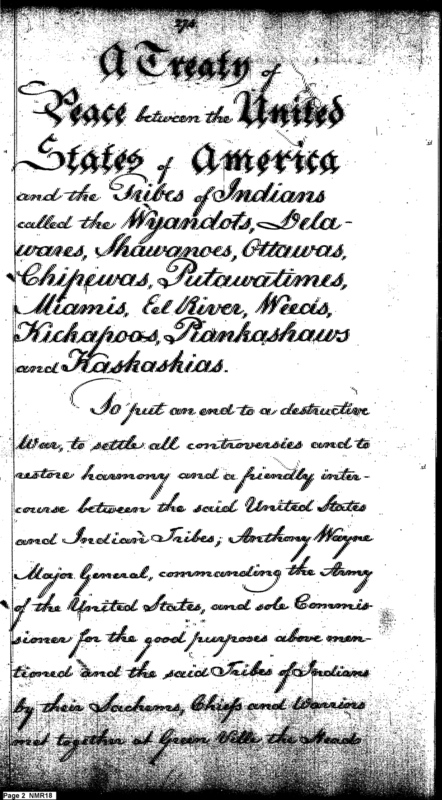 274
A Treaty of
Peace between the United
States of America
and the Tribes of Indians
called the Wyandots, Dela-
wares, Shawanoes, Ottawas,
Chipewas, Putawatimes,
Miamis, Eel River, Weeas,
Kickapoos, Piankashaws
and Kaskaskias.
To put an end to a destructive
War, to settle all controversies and to
restore harmony and a friendly inter-
course between the said United States
and Indian Tribes; Anthony Wayne
Major General, commanding the Army
of the United States, and sole Commis-
sioner for the good purposes above men-
tioned and the said Tribes of Indians
by their Sachems, Chiefs and Warriors
met together at Green Ville the Head
Page 2 NMR18